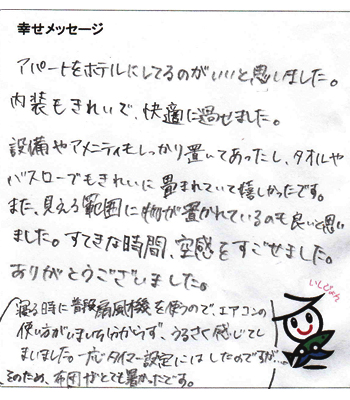 幸せメッセージ
アパートをホテルにしてるのがいいと思いました。
内装もきれいで、快適に過せました。
設備やアメニティもしっかり置いてあったし、タオルや
バスローブもきれいに畳まれていて嬉しかったです。
また、見えるう範囲に物が置かれているのも良いと思い
ました。すてきな時間、空感をすごせました。
ありがとうございました。
いしじょん
寝る時に普段扇風機を使うので、エアコンの
使い方がいまいち分からず、うるさく感じてし
まいました。一応タイマー設定にはしたのですが…。
そのため、布団がとても暑かったです。